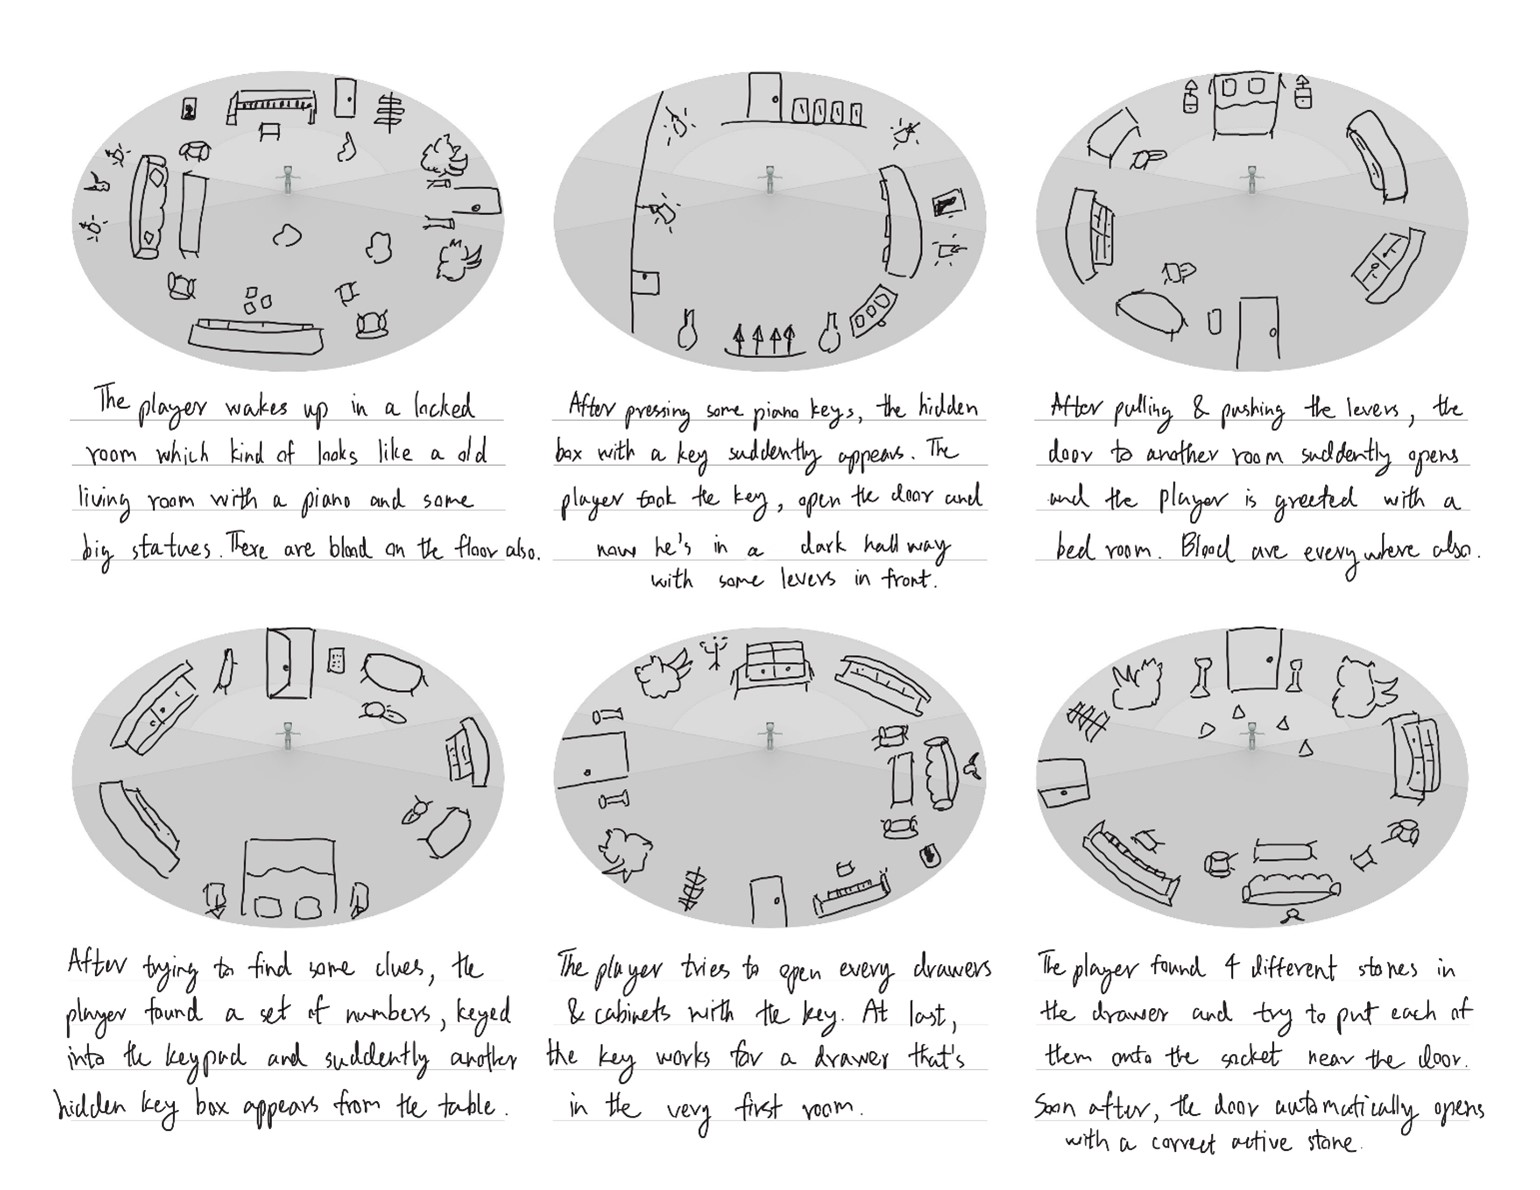 The player wakes up in a locked
room which kind of looks like a old
living room with a piano and some
big statues. There are blood on the floor also.
After pressing some piano keys, the hidden
box with a key suddently appears. The
player took the key, open the door and
now he's in a dark hallway
with some levers in front.
After pulling & pushing the levers, the
door to another room suddently opens
and the player is greeted with a
bed room. Blood are everywhere also.
After trying to find some clues, the
player found a set of numbers, keyed
into the keypad and suddently another
hidden key box appears from the table.
The player tries to open every drawers
& cabinets with the key. At last,
the key works for a drawer that's
in the very first room.
The player found 4 different stones in
the drawer and try to put each of
them onto the socket near the door.
Soon after, the door automatically opens
with a correct active stone.